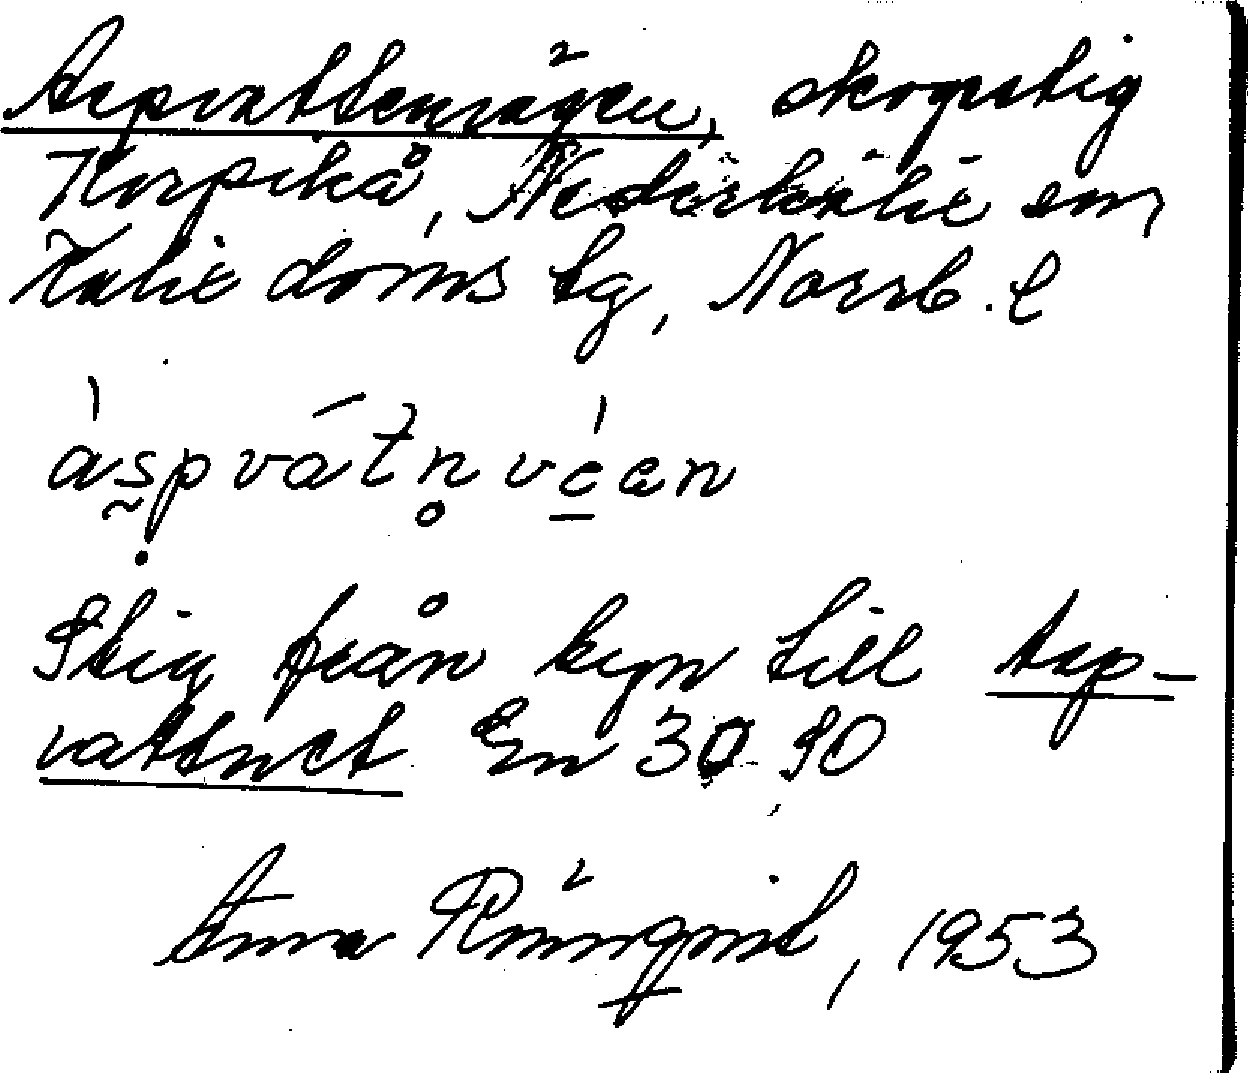 Aspvattenvägen, skogsstig
Korpikå, Nederkalix sn,
Kalix doms tg, Norrb. l
áspvátn vęen
Stig från byn till Asp-
vattnet En 30 90
Anna Rönnqvist, 1953